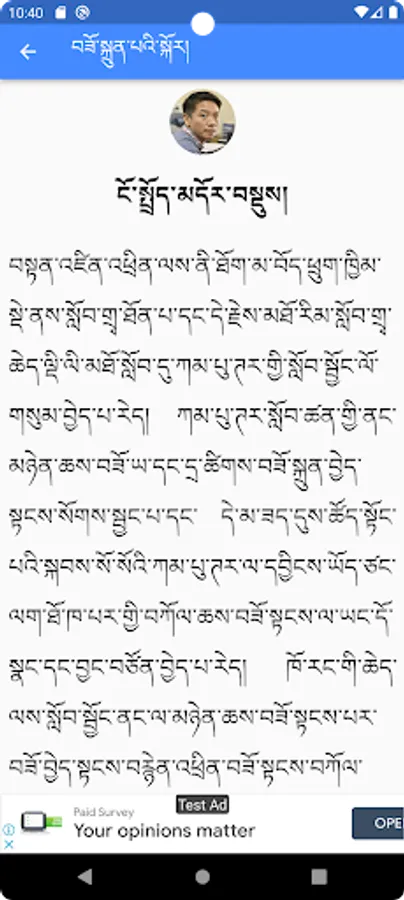 10:40
བཟོ་སྐྲུན་པའི་སྐོར།
ངོ་སྤྲོད་མདོར་བསྡུས།
བསྟན་འཛིན་འཕྲིན་ལས་ནི་ཐོག་མ་བོད་ཕྲུག་ཁྱིམ་
སྡེ་ནས་སློབ་གྲྭ་ཐོན་པ་དང་དེ་རྗེས་མཐོ་རིམ་སློབ་གྲྭ་
ཆེད་ལྡི་ལི་མཐོ་སློབ་ཏུ་ཀམ་པུ་ཊར་གྱི་སློབ་སྦྱོང་ལོ་
གསུམ་བྱེད་པ་རེད། ཀམ་པུ་ཊར་སློབ་ཚན་གྱི་ནང་
མཉེན་ཆས་བཟོ་ཡ་དང་དྲ་ཚིགས་བཟོ་སྐྲུན་བྱེད་
སྟངས་སོགས་སྦྱང་པ་དང་ དེ་མ་ཟད་དུས་ཚོད་སྟོང་
པའི་སྐབས་སོ་སོའི་ཀམ་པུ་ཊར་ལ་དབྱིངས་ཡོད་ཙང་
ལག་ཐོ་ཁ་པར་གྱི་བཀོལ་ཆས་བཟོ་སྟངས་ལ་ཡང་དོ་
སྣང་དང་བྱང་བཙོན་བྱེད་པ་རེད། ཁོ་རང་གི་ཆེད་
ལས་སློབ་སྦྱོང་ནང་ལ་མཉེན་ཆས་བཟོ་སྟངས་པར་
བཟོ་བྱེད་སྟངས་བརྙེན་འཕྲིན་བཟོ་སྟངས་བཀོལ་
Test Ad
Paid Survey
Your opinions matter
OPE